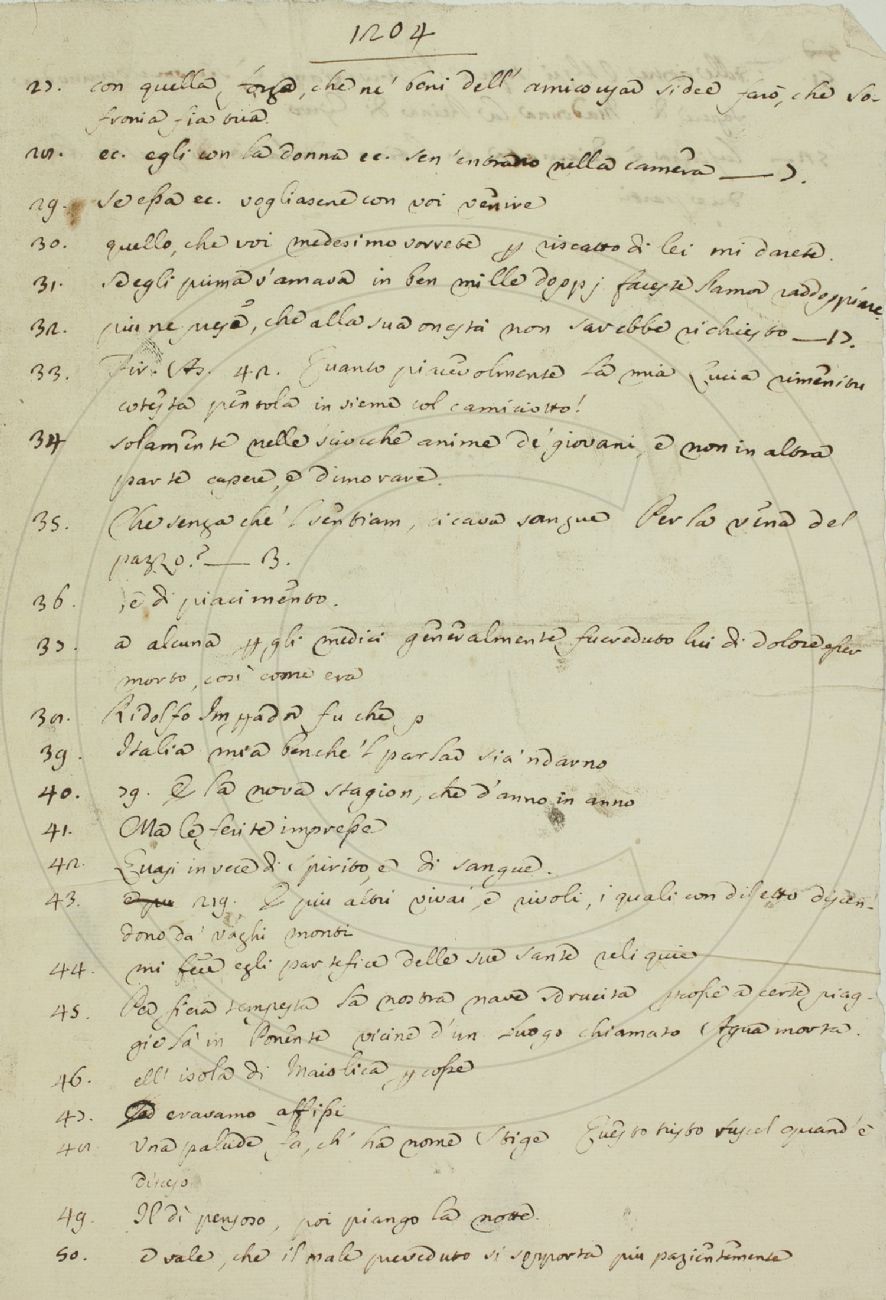 1204
27. con quella forza, che ne' beni dell' amico usar si dee farò, che So-
fronia fia tua
28. ec. egli con la donna ec. sen' entrano nella camera — 7.
29. Se essa ec. vogliasene con voi venire
30. quello, che voi medesimo vorrete p riscatto di lei mi darete.
31. Se egli prima v'amava in ben mille doppj faceste l'amor raddoppiare.
32. più ne presta, che alla sua onestà non sarebbe richiesto — 17.
33. Fir. As. 42. Quanto piacevolmente la mia Lucia rimenita
cotesta pentola insieme col camiciotto!
34 solamente nelle sciocche anime de' giovani, e non in altra
parte capere, e dimorare.
35. Che senza che 'l sentiam, ci cava sangue Per la vena del
pazzo? — 3.
36. è di piacimento.
37. a alcuna p gli medici generalmente fu creduto lui di dolore esser
morto, così come era
38. Ridolfo Imperador fu che p
39. Italia mia benche 'l parlar sia 'ndarno
40. 79. E la nova stagion, che d'anno in anno
41. Ma le ferite impresse
42. Quasi in vece di spirito, e di sangue.
43. 219. E più altri vivai, e rivoli, i quali con diletto discen-
dono da' vaghi monti
44. mi fece egli partefice delle sue sante reliquie
45. Per fiera tempesta la nostra nave sdrucita percosse a certe piag-
gie là in Ponente vicine d'un luogo chiamato Aqua morta.
46. ell' isola di Maiolica percosse
47. eravamo affissi
48 Una palude fa, ch' ha nome Stige Questo tristo ruscel quand' è
disceso
49. Il dì pensoso, poi piango la notte.
50. e vale, che il male preveduto si sopporta più pazientemente